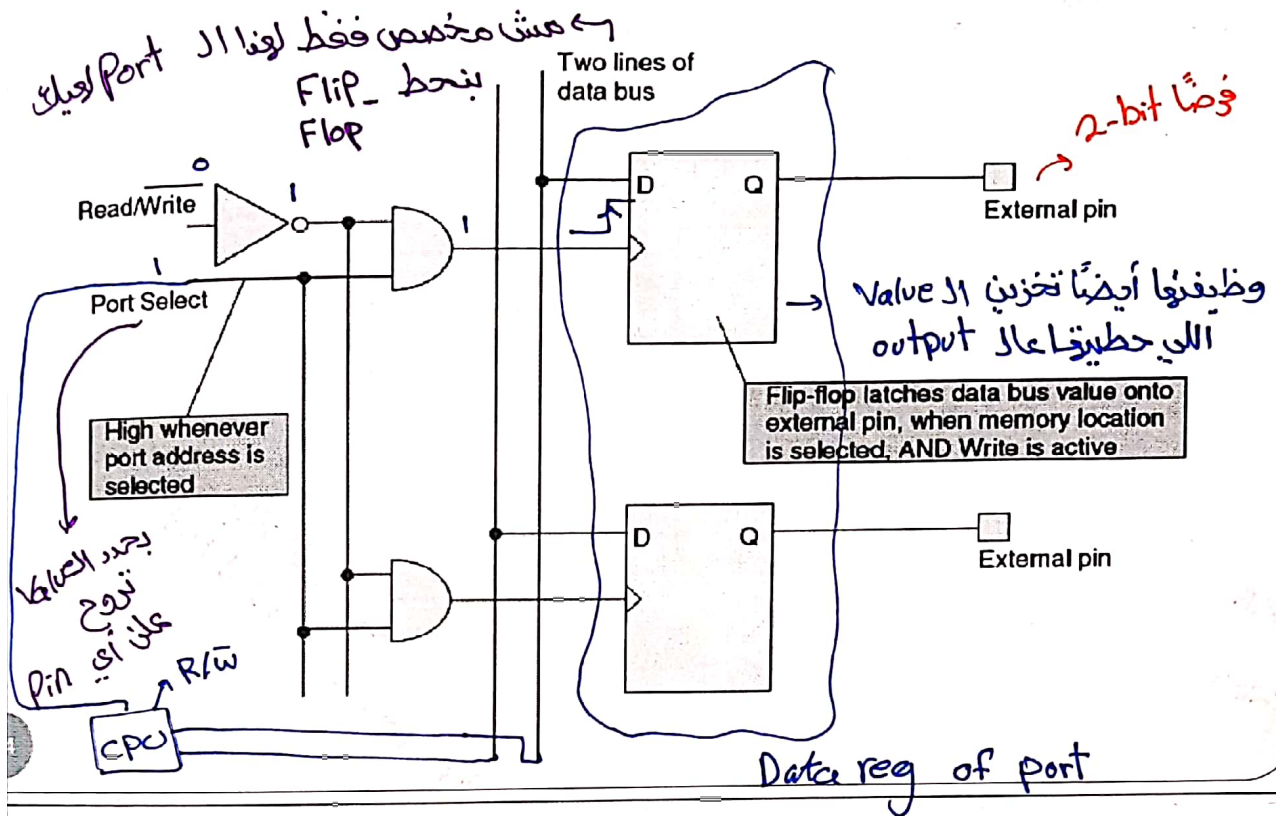 ← مش مخصص فقط لهذا ال Port لهيك
بنحط Flip_
Flop
Two lines of
data bus
فرضًا 2-bit
0
Read/Write
1
1
D
Q
External pin
1
Port Select
→ وظيفتها أيضًا تخزين ال Value
اللي حطيتها عال output
High whenever
port address is
selected
Flip-flop latches data bus value onto
external pin, when memory location
is selected, AND Write is active
D
Q
External pin
بحدد ال Value
تروح
على أي
Pin
R/W̅
CPU
Data reg of port